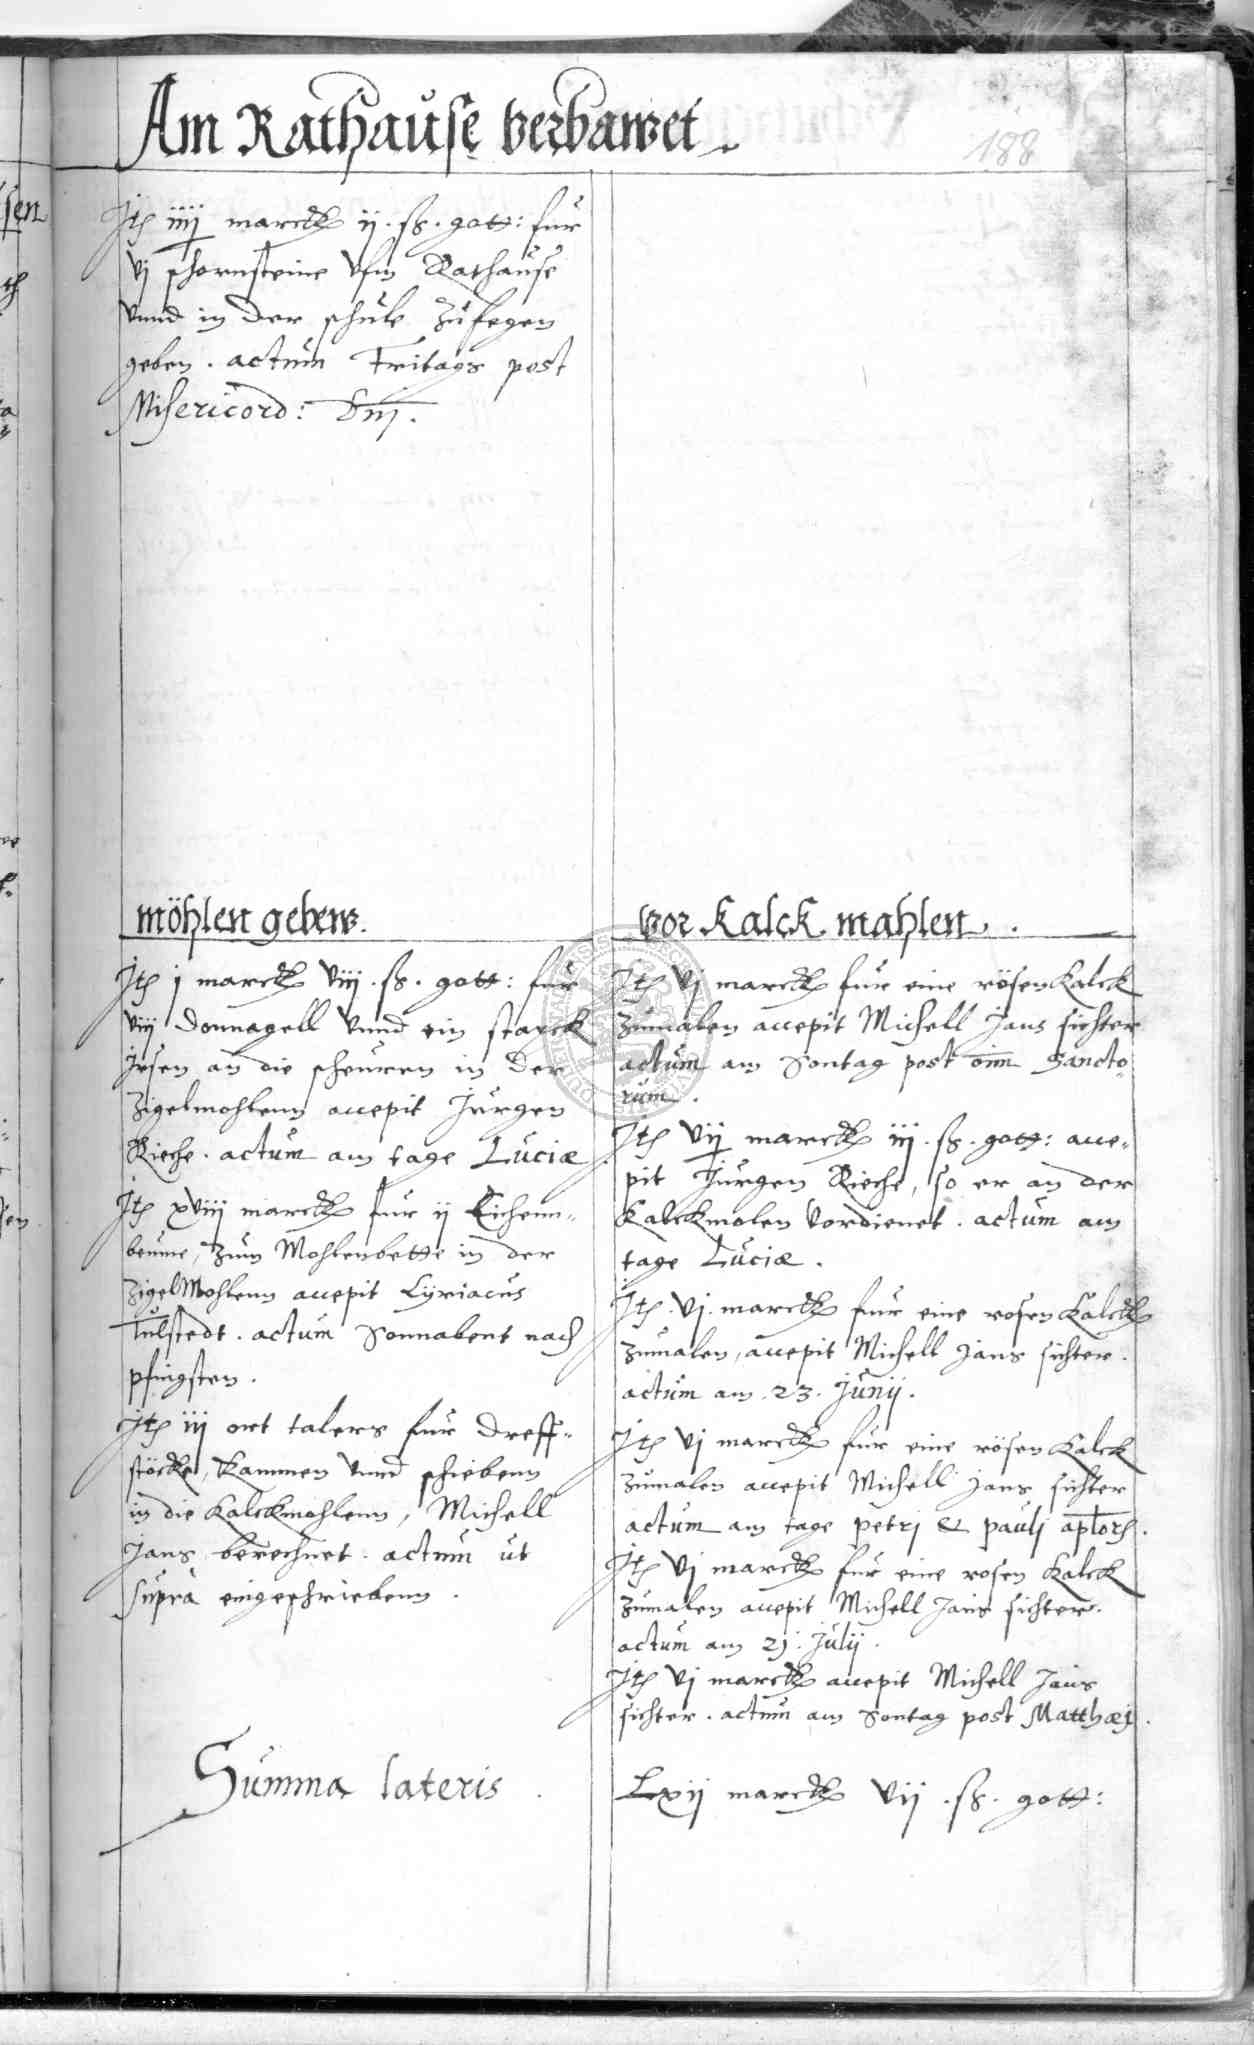 Am Rathause verbawet.
188
Jtē iiij marck ij. ß. gott: fur
vj schornsteine vfm Rathause
vnnd in der schule zufegen
geben. actum Fritags post
Misericord: Dnj.
möhlen gebew.
Jtē j marck viij. ß. gott: fur
viij donnagell vnnd ein starck
Jsen an die scheuren in der
zigelmohlenn accepit Jurgen
Rieche. actum am tage Luciæ
Jtē xviij marck fur ij Eichenn-
beume, zum Mohlenbette in der
zigelMohlenn accepit Cyriacus
Tulstedt. actum Sonnabent nach
pfingsten.
Jtē iij ort talers fur dreff-
stöcke, Kammen vnnd schiebenn
in die Kalckmohlenn, Michell
Jans berechnet. actum ut
supra eingeschriebenn.
vor Kalck mahlen.
Jtē vj marck fur eine rösen Kalck
zumalen accepit Michell Jans sichter
actum am Sontag post oim Sancto-
rum.
Jtē vij marck iij. ß. gott: acce-
pit Jurgen Rieche, so er an der
Kalckmolen vordienet. actum am
tage Luciæ.
Jtē. vj. marck fur eine rosen Kalck
zumalen, accepit Michell Jans sichter.
actum am 23. Junij.
Jtē vj marck fur eine rösen Kalck
zumalen accepit Michell Jans sichter
actum am tage petrj & paulj aplorū.
Jtē vj marck fur eine rosen Kalck
zumalen accepit Michell Jans sichter.
actum am 21. Julij.
Jtē vj marck accepit Michell Jans
sichter. actum am Sontag post Matthæj.
Summa lateris
Lxij marck vij. ß. gott: